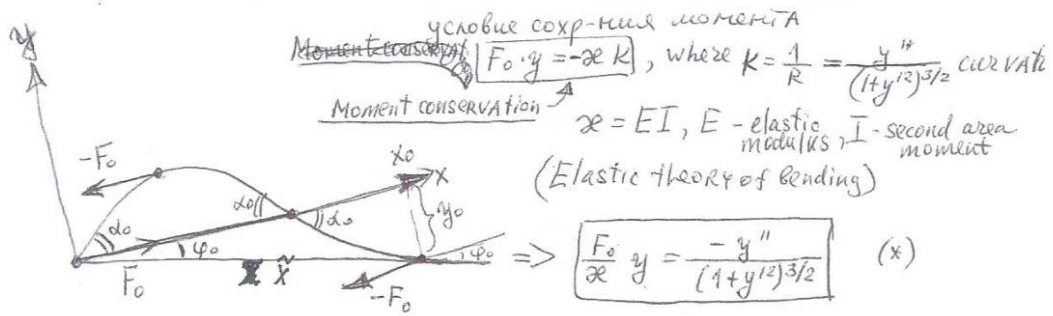 условие сохр-ния моментА
Moment conservat. F₀·y = -æ K, where K = 1/R = y''/(1+y'²)^3/2 curvatu
Moment conservation
æ = EI, E - elastic modulus, I - second area moment
(Elastic theory of bending)
y
-F₀
α₀
φ₀
F₀
x̃
α₀
α₀
x₀
x
y₀
φ₀
-F₀
=> F₀/æ y = -y''/(1+y'²)^3/2 (*)